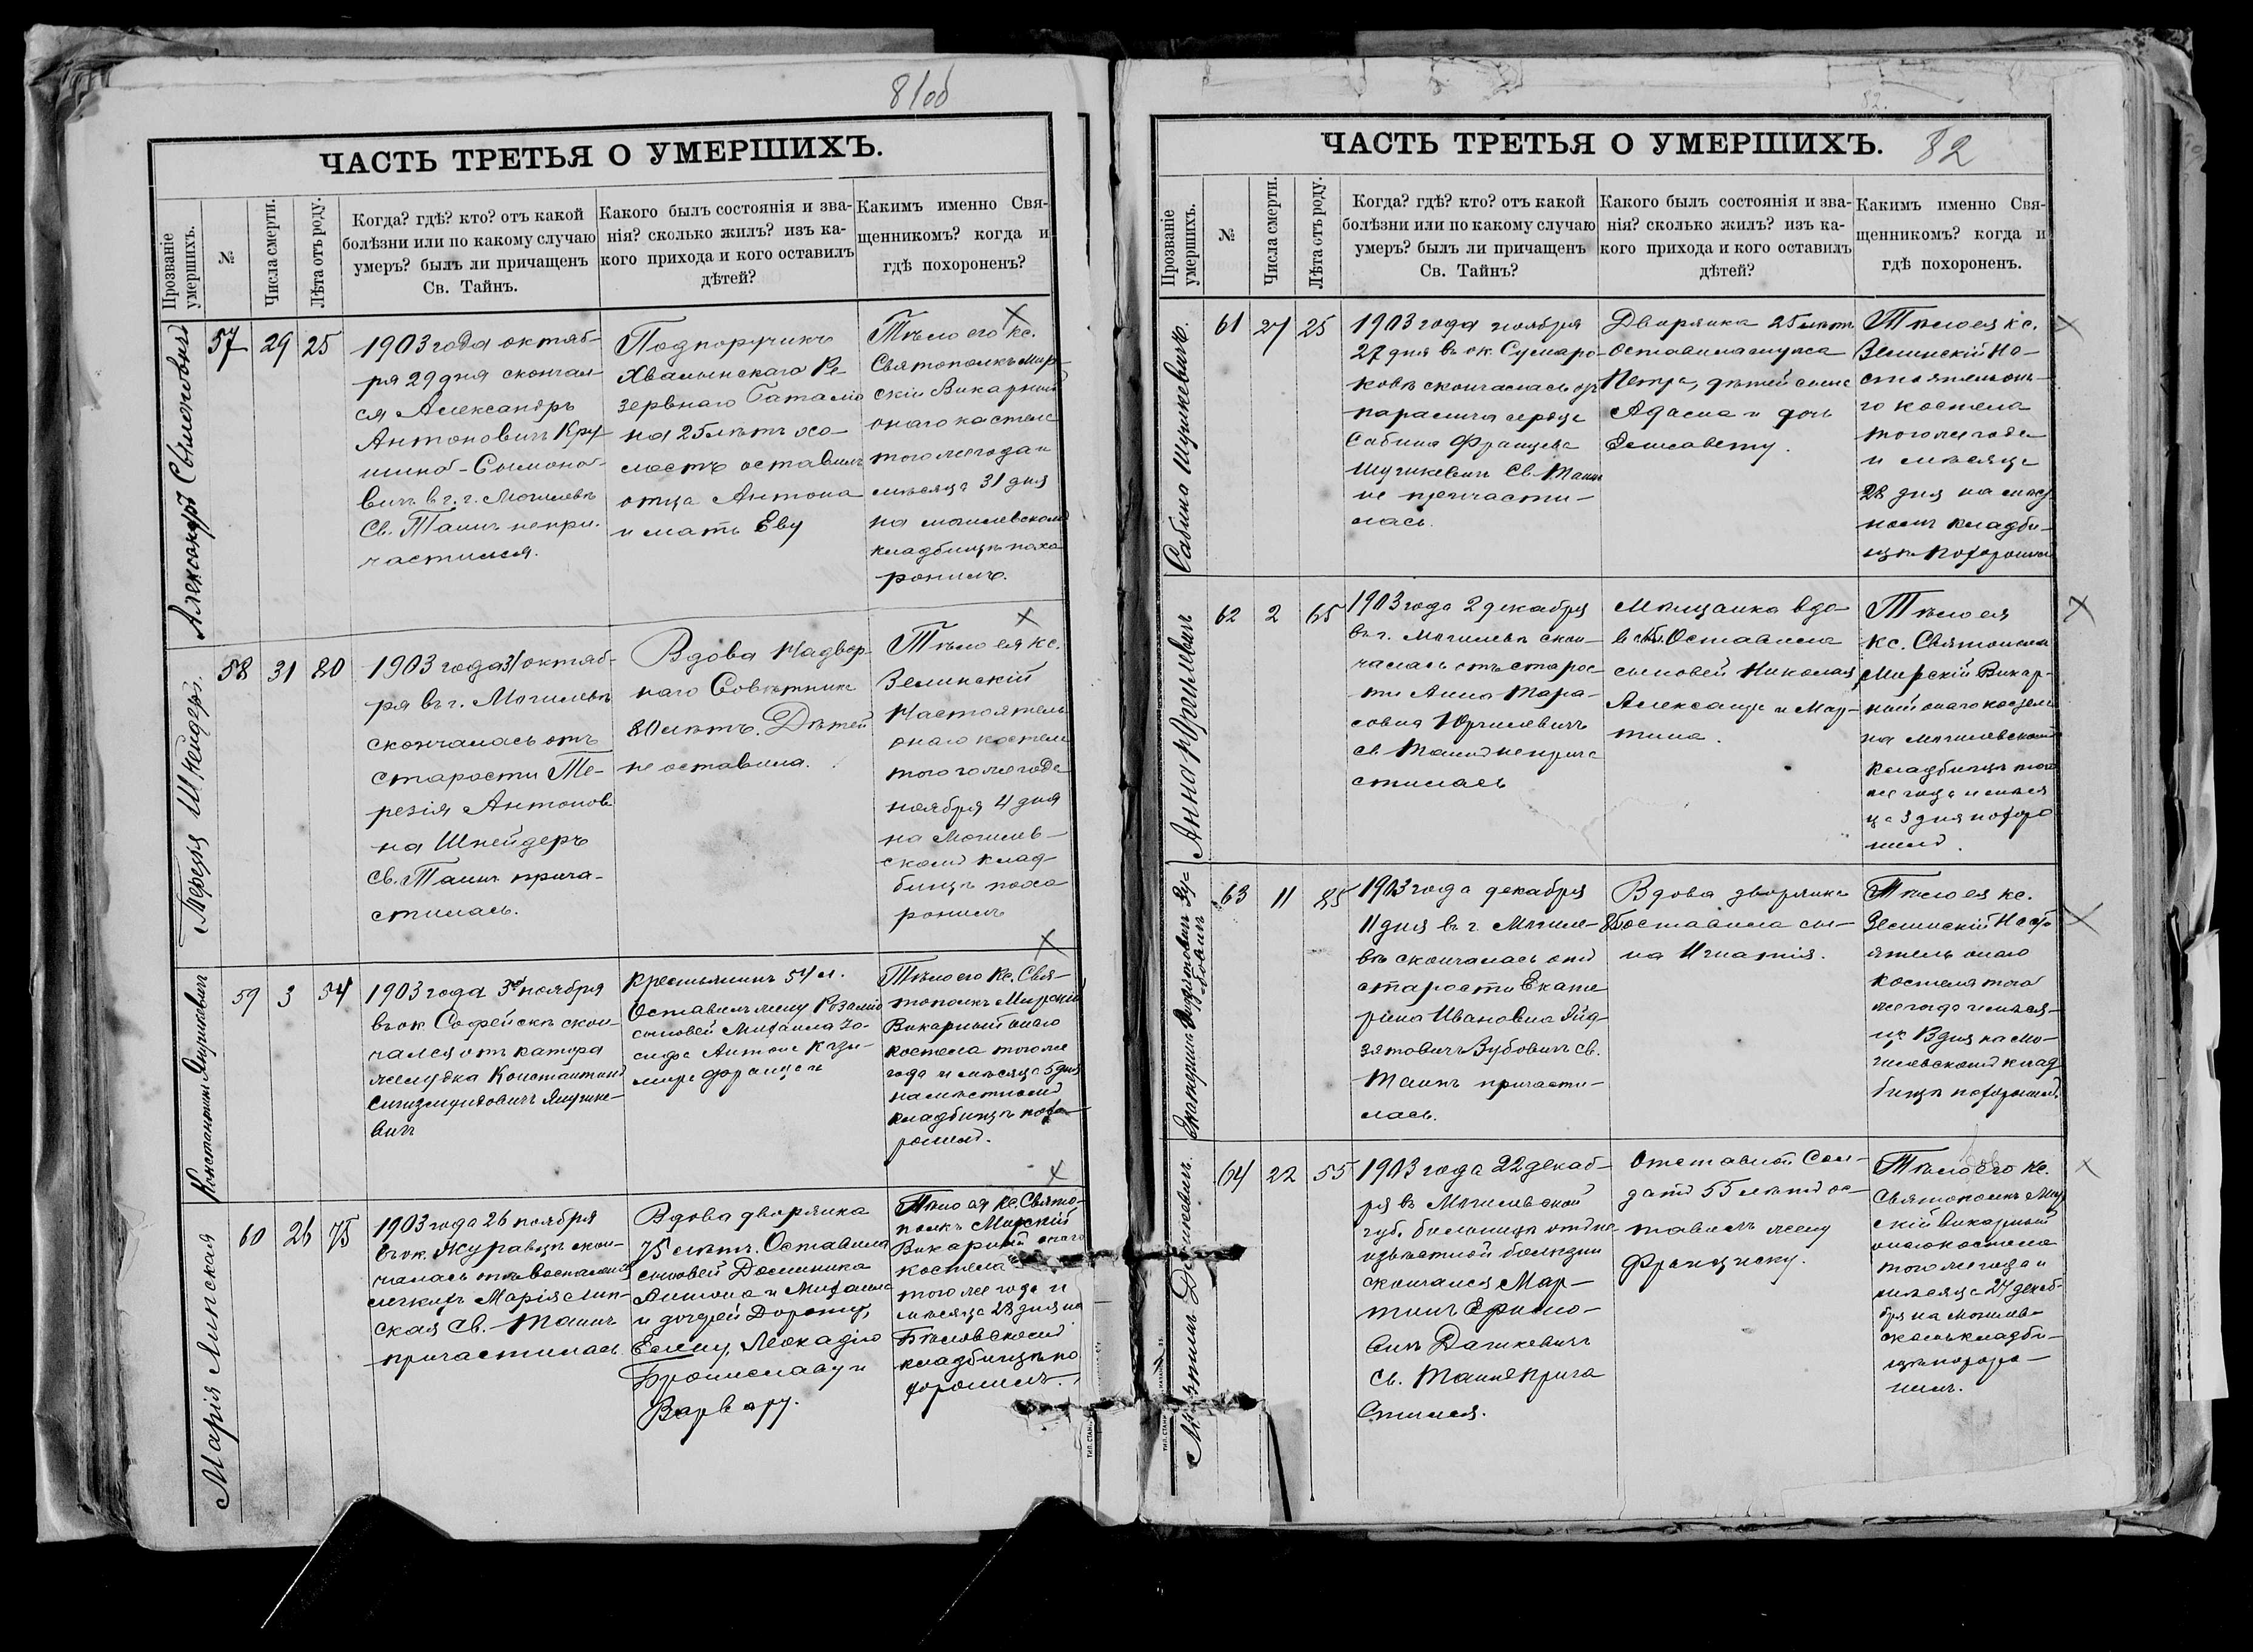 81об
ЧАСТЬ ТРЕТЬЯ О УМЕРШИХЪ.
Прозваніе умершихъ.
№
Числа смерти.
Лѣта отъ роду.
Когда? гдѣ? кто? отъ какой
болѣзни или по какому случаю
умеръ? былъ ли причащенъ
Св. Тайнъ.
Какого былъ состоянія и зва-
нія? сколько жилъ? изъ ка-
кого прихода и кого оставилъ
дѣтей?
Какимъ именно Свя-
щенникомъ? когда и
гдѣ похороненъ?
Александръ
57
29
25
1903 года октяб-
ря 29 дня скончал
ся Александръ
Антоновичъ Кру
Сымоно-
вичъ в г. г. Могилевѣ
Св. Таинъ непри-
частился.
Подпоручикъ
Хвалынскаго Ре
зервнаго Баталіо
на 25 лѣтъ хо-
лостъ оставилъ
отца Антона
и мать Еву
Тѣло его кс.
Святополкъ Мир-
скій Викарный
онаго костела
того же года и
мѣсяца 31 дня
на могилевскомъ
кладбищѣ похо
ронилъ.
Терезія Шнейдеръ.
58
31
80
1903 года 31 октяб-
ря въ г. Могилевѣ
скончалась отъ
старости Те-
резія Антонов
на Шнейдеръ
Св. Таинъ прича-
стилась.
Вдова Надвор-
наго Совѣтника
80 лѣтъ. Дѣтей
не оставила.
Тѣло ея кс.
Зелинскій
Настоятель
онаго костела
того же года
ноября 4 дня
на Могилев-
скомъ клад-
бищѣ похо
ронилъ
Константинъ
59
3
54
1903 года 3го ноября
въ ок. Софейскѣ скон-
чался отъ катара
желудка Константинъ
Сигизмундовичъ
вичъ
Крестьянинъ 54 л.
Оставилъ жену Розалію
сыновей Михаила Іо-
сифа Антона Кази-
мира Франца и
Тѣло его Кс. Свя-
тополкъ Мирскій
Викарный онаго
костела того же
года и мѣсяца 5 дня
на мѣстномъ
кладбищѣ похо-
ронилъ.
Марія Липская
60
26
75
1903 года 26 ноября
въ ок. Журавцѣ скон-
чалась отъ воспаленія
легкихъ Марія Лип-
ская Св. Таинъ
причастилась
Вдова дворянка
75 лѣтъ. Оставила
сыновей Доминика
Антона и Михаила
и дочерей Дороту,
Елену, Леокадію
Брониславу и
Варвару.
Тѣло ея Кс. Свято-
полкъ Мирскій
Викарный онаго
костела
того же года и
мѣсяца 28 дня на
кладбищѣ по
хоронилъ.
82.
ЧАСТЬ ТРЕТЬЯ О УМЕРШИХЪ.
82
Прозваніе умершихъ.
№
Числа смерти.
Лѣта отъ роду.
Когда? гдѣ? кто? отъ какой
болѣзни или по какому случаю
умеръ? былъ ли причащенъ
Св. Тайнъ?
Какого былъ состоянія и зва-
нія? сколько жилъ? изъ ка-
кого прихода и кого оставилъ
дѣтей?
Какимъ именно Свя-
щенникомъ? когда и
гдѣ похороненъ.
Сабина
61
27
25
1903 года ноября
27 дня въ ок. Сумаро-
ковѣ скончалась отъ
паралича сердца
Сабина Францева
Св. Таинъ
не причасти-
лась.
Дворянка 25 лѣтъ
Оставила мужа
Петра, дѣтей сына
Адама и дочь
Елисавету.
Тѣло ея кс.
Зелинскій На-
стоятель она-
го костела
того же года
и мѣсяца
28 дня на мѣст
номъ кладби-
щѣ похоронилъ
Анна Юргилевичъ
62
2
65
1903 года 2 декабря
въ г. Могилевѣ скон-
чалась отъ старос-
ти Анна Тара-
совна Юргилевичъ
св. Таинъ неприча
стилась
Мѣщанка вдо-
ва Оставила
сыновей Николая
Александра и Мар-
тина.
Тѣло ея
кс. Святополкъ
Мирскій Викар-
ный онаго костела
на могилевскомъ
кладбищѣ того
же года и мѣся
ца 3 дня похоро
нилъ.
Екатерина
63
11
85
1903 года декабря
11 дня въ г. Могиле-
вѣ скончалась отъ
старости Екате
рина Ивановна
Зубовичъ св.
Таинъ причасти-
лась.
Вдова дворянка
85 оставила сы-
на Игнатія.
Тѣло ея кс.
Зелинскій Насто
ятель онаго
костела того
же года и мѣся-
ца 13 дня на Мо-
гилевскомъ клад
бищѣ похоронилъ.
Мартинъ Дашкевичъ.
64
22
55
1903 года 22 декаб-
ря въ Могилевской
губ. больницѣ отъ не
извѣстной болѣзни
скончался Мар-
тинъ
Дашкевичъ
Св. Таинъ прича
стился.
Отставной Сол-
датъ 55 лѣтъ ос-
тавилъ жену
Франциску.
Тѣло его Кс.
Святополкъ Мир
скій Викарный
онаго костела
того же года и
мѣсяца 27 декаб-
бря на Могилев-
скомъ кладби-
щѣ похоро-
нилъ.